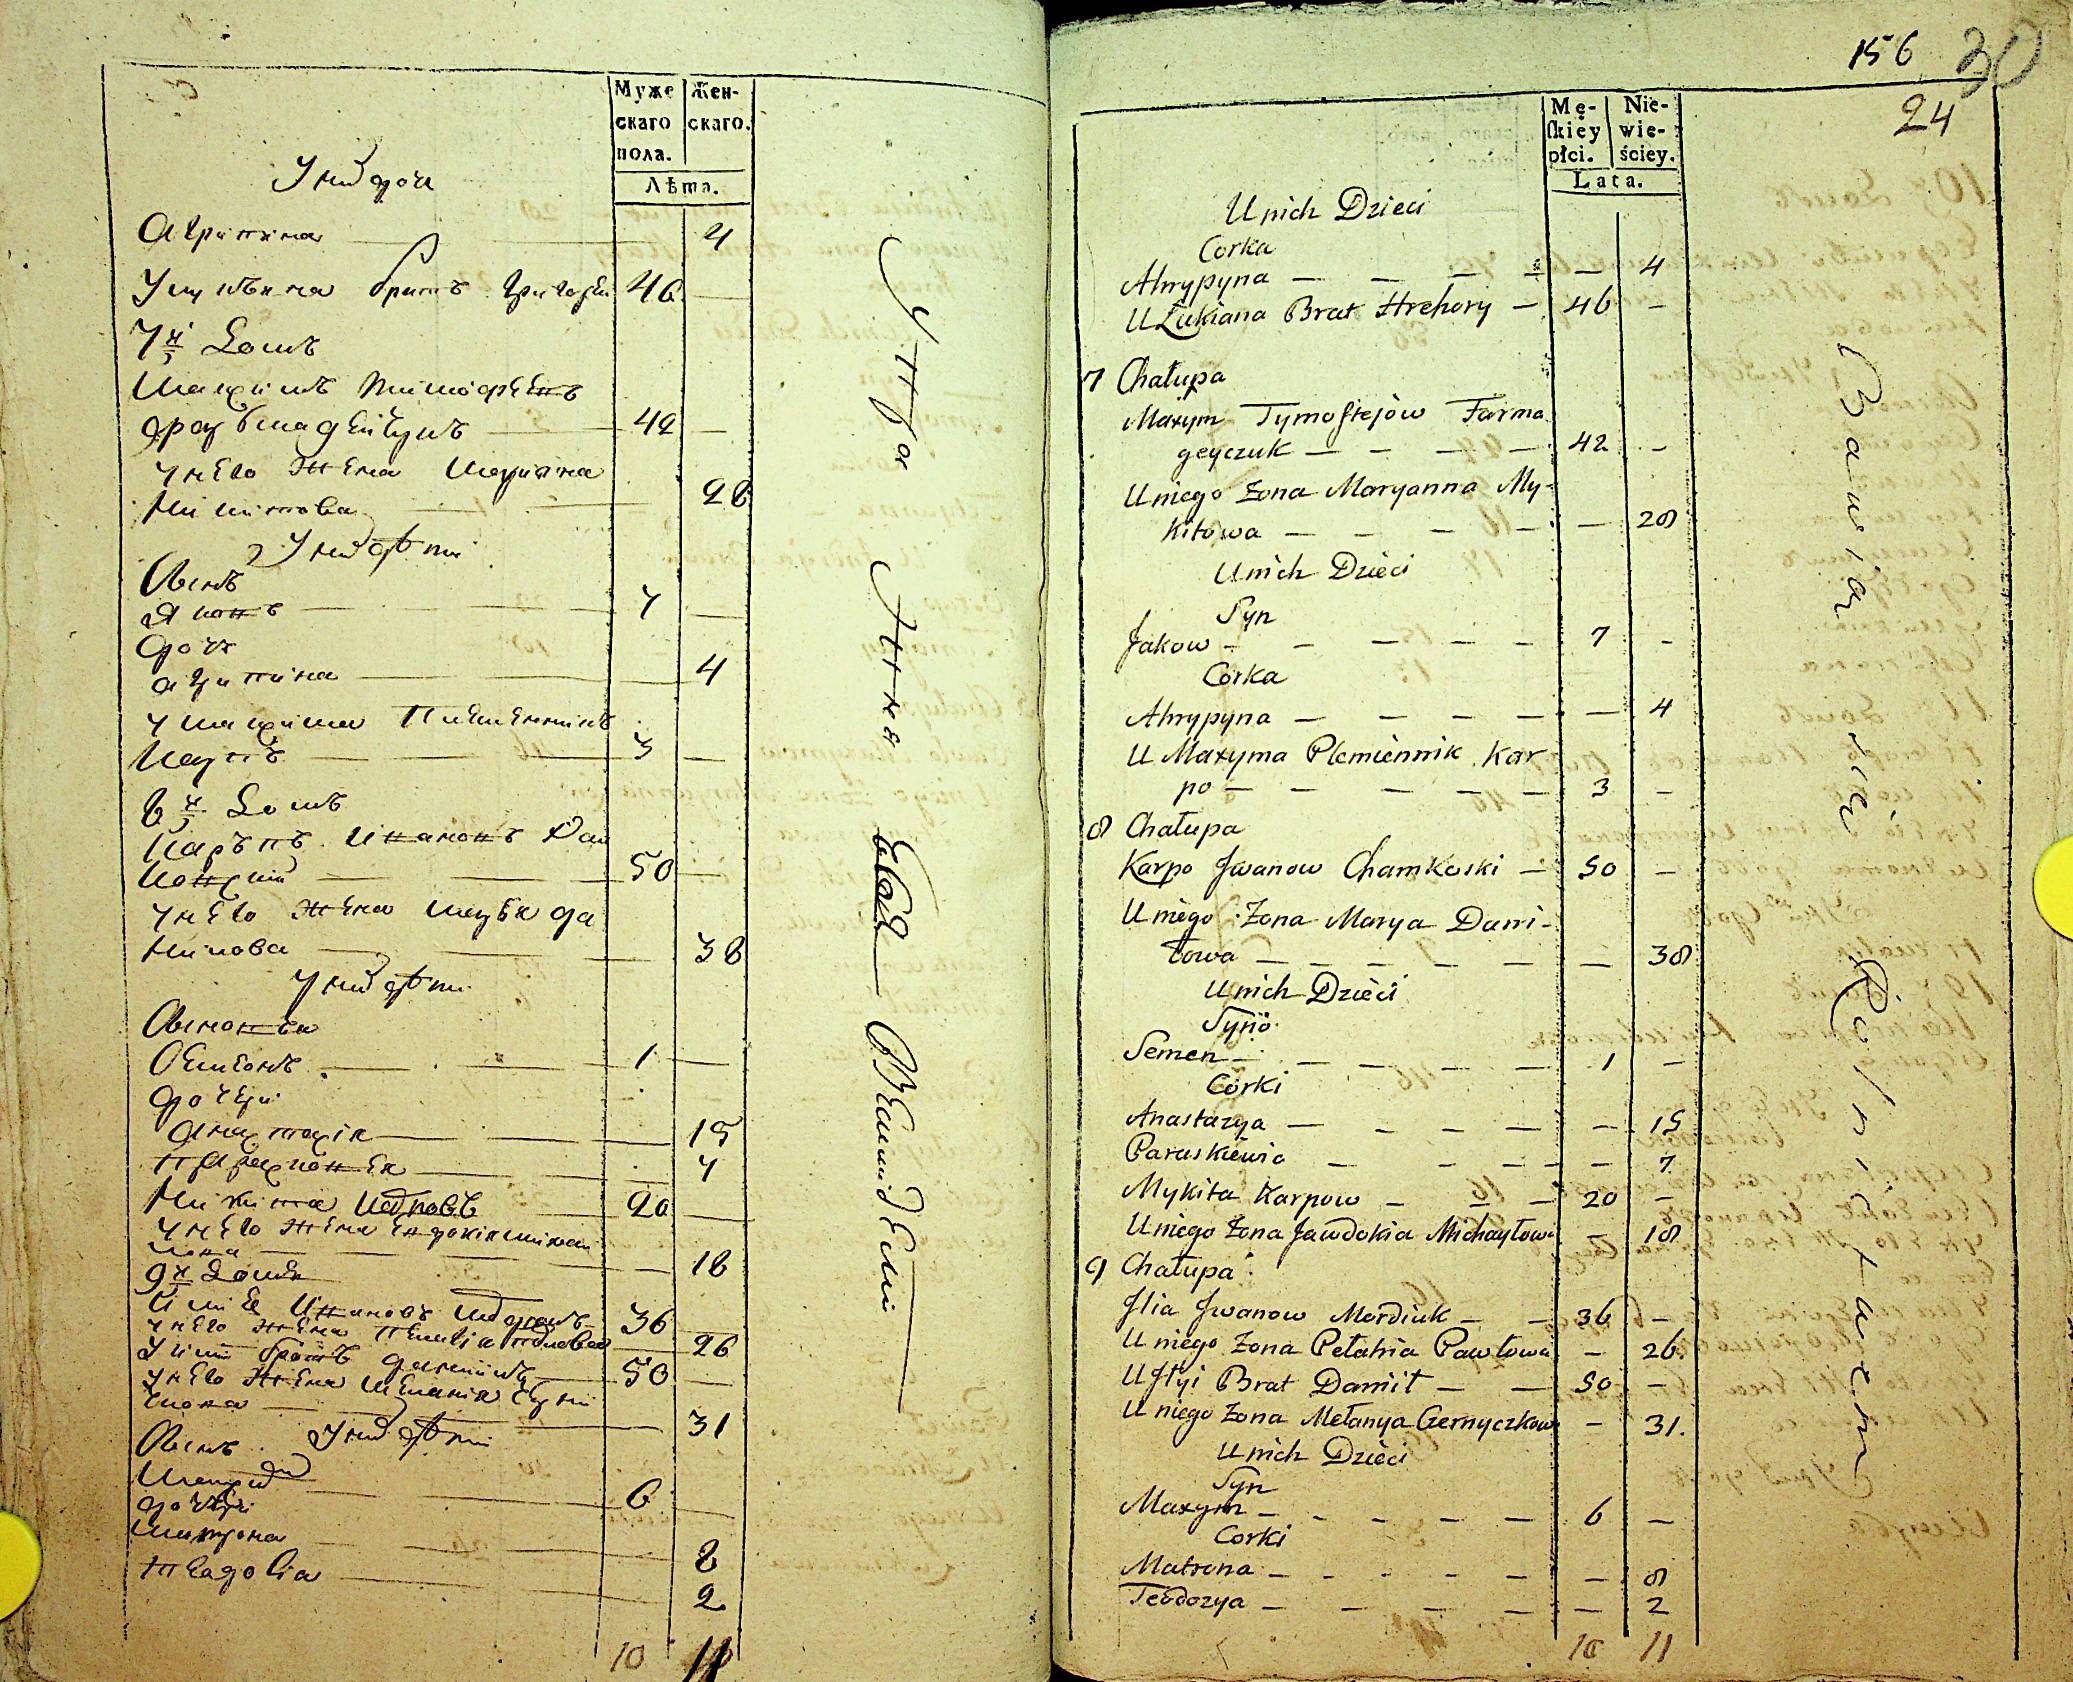 Муже
скаго
пола.
Жен-
скаго.
Лѣта.
У нихъ дочь
Агрипина 4
У Лукьяна братъ Григорей 46
7й Домъ
Максимъ Тимофеевъ
42
у него жена Марияна
Микитова 28
У нихъ дѣти
Сынъ
Яковъ 7
дочь
агрипина 4
у Максима Племенникъ
Карпъ 3
8й Домъ
Карпъ Ивановъ Хам
ковский 50
у него жена Марья Да
нилова 38
у нихъ дѣти
Сыновья
Семенъ 1
дочери
анастасия 15
парасковея 7
Микита Карповъ 20
у него жена Евдокия Михай
лова 18
9й Домъ
Илия Ивановъ 36
у него жена Пелагия Павлова 26
У Илии братъ данила 50
у него жена Мелания
31
Сынъ У нихъ дѣти
Максимъ 6
дочери
Матрона 8
Теодосия 2
10 11
156 30
24
Mę-
ſkiéy
płci.
Nie-
wie-
ściey.
Lata.
U nich Dzieci
Corka
Ahrypyna — — — — — 4
U Łukiana Brat Hrehory — 46 —
7 Chałupa
Maxym Tymofiejów Farma
geyczuk — — — — 42 —
U niego Zona Maryanna My-
kitowa — — — — — 28
U nich Dzieci
Syn
Jakow — — — — — 7 —
Corka
Ahrypyna — — — — — 4
U Maxyma Plemiennik Kar
po — — — — — 3 —
8 Chałupa
Karpo Jwanow Chamkoski — 50 —
U niego Zona Marya Dani-
łowa — — — — — 38
U nich Dzieci
Syn
Semen — — — — — 1 —
Corki
Anastazya — — — — — 15
Paraskiewia — — — — — 7
Mykita Karpow — — — 20 —
U niego Zona Jawdokia Michayłowa — 18
9 Chałupa
Jlia Jwanow Mordiuk — — 36 —
U niego Zona Pełahia Pawłowa — 26.
U Jlyi Brat Daniił — — 50 —
U niego Zona Mełanya Czernyczkowa — 31.
U nich Dzieci
Syn
Maxym — — — — — 6 —
Corki
Matrona — — — — — — 8
Teodozya — — — — — 2
10 11